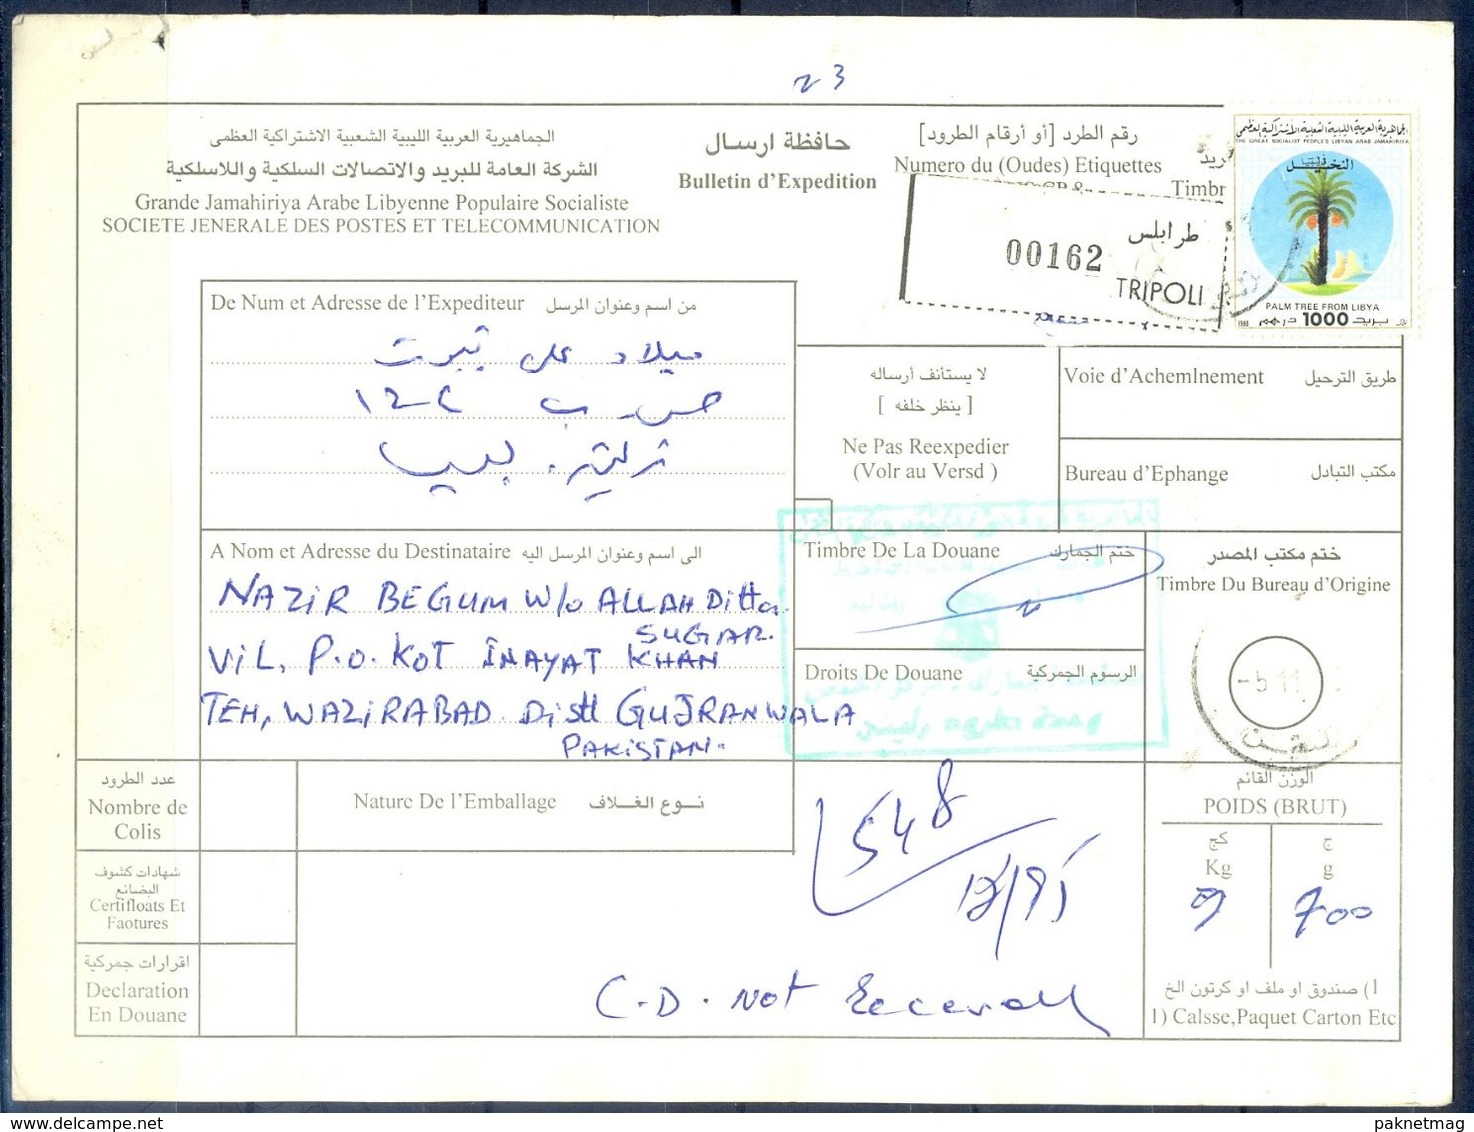 23
الجماهيرية العربية الليبية الشعبية الاشتراكية العظمى
الشركة العامة للبريد والاتصالات السلكية واللاسلكية
Grande Jamahiriya Arabe Libyenne Populaire Socialiste
SOCIETE JENERALE DES POSTES ET TELECOMMUNICATION
حافظة ارسال
Bulletin d'Expedition
رقم الطرد [أو أرقام الطرود]
Numero du (Oudes) Etiquettes
Timbr
طرابلس
00162
TRIPOLI
الجماهيرية العربية الليبية الشعبية الاشتراكية العظمى
THE GREAT SOCIALIST PEOPLE'S LIBYAN ARAB JAMAHIRIYA
النخيل
PALM TREE FROM LIBYA
1000 درهم بريد
De Num et Adresse de l'Expediteur من اسم وعنوان المرسل
ميلاد علي
ص. ب
لا يستأنف أرساله
[ ينظر خلفه ]
Ne Pas Reexpedier
(Volr au Versd )
Voie d'Achemlnement طريق الترحيل
Bureau d'Ephange مكتب التبادل
A Nom et Adresse du Destinataire الى اسم وعنوان المرسل اليه
NAZIR BEGUM W/O ALLAH Ditta
SUGAR.
ViL. P.O. KOT INAYAT KHAN
TEH, WAZIRABAD Distt GUJRANWALA
PAKISTAN.
Timbre De La Douane ختم الجمارك
Droits De Douane الرسوم الجمركية
ختم مكتب المصدر
Timbre Du Bureau d'Origine
-5 11
عدد الطرود
Nombre de
Colis
Nature De l'Emballage نوع الغلاف
شهادات كشوف
البضائع
Certifloats Et
Faotures
اقرارات جمركية
Declaration
En Douane
548
12/95
C.D. Not
الوزن القائم
POIDS (BRUT)
كج ج
Kg g
9 700
1) صندوق او ملف او كرتون الخ
1) Calsse,Paquet Carton Etc
delcampe.net
paknetmag